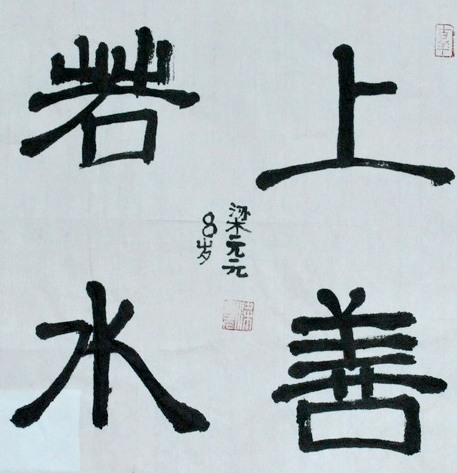 上善
若水
梁元元
8岁